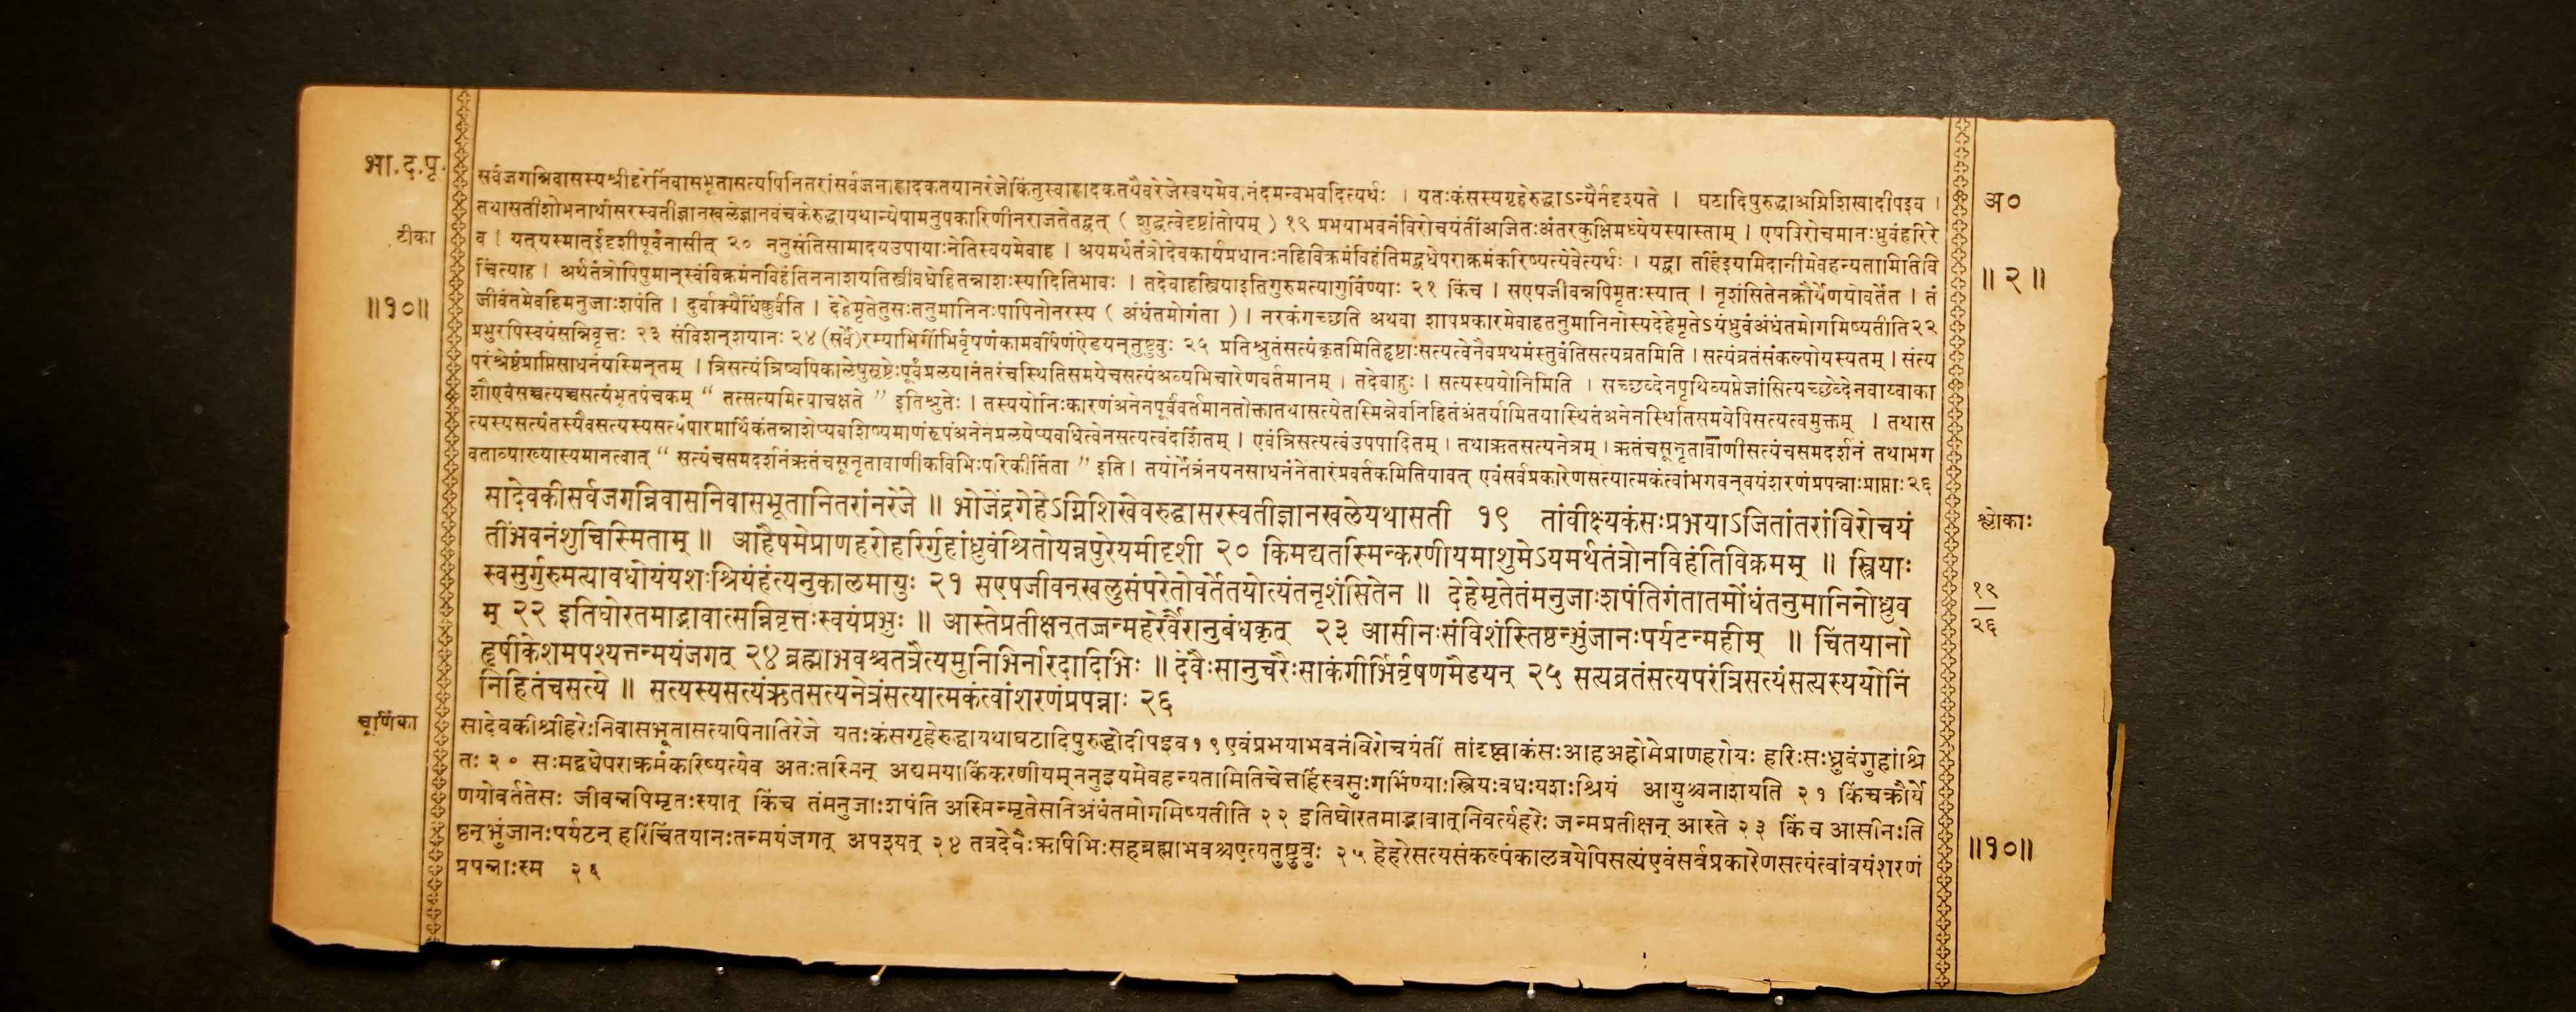 भा.द.पू.
सर्वजगन्निवासस्यश्रीहरेर्निवासभूतासत्यपिनितरांसर्वजनाह्लादकतयानरेजेकिंतुस्वाह्लादकतयैवरेजेस्वयमेवानंदमन्वभवदित्यर्थः । यतःकंसस्यगृहेरुद्धाऽन्यैर्नदृश्यते । घटादिषुरुद्धाअग्निशिखादीपइव ।
अ०
तथासतीशोभनार्थासरस्वतीज्ञानखलेज्ञानवंचकेरुद्धायथान्येषामनुपकारिणीनराजतेतद्वत् ( शुद्धत्वेदृष्टांतोयम् ) १९ प्रभयाभवनंविरोचयंतींअजितःअंतरकुक्षिमध्येयस्यास्ताम् । एषविरोचमानःध्रुवंहरिरे
टीका
व । यत्यस्मात्ईदृशीपूर्वंनासीत् २० ननुसंतिसामादयउपायाःनेतिस्वयमेवाह । अयमर्थतंत्रोदेवकार्यप्रधानःनहिविक्रमंविहंतिमद्वधेपराक्रमंकरिष्यत्येवेत्यर्थः । यद्वा तर्हिइयमिदानीमेवहन्यतामितिवि
॥ २ ॥
चिंत्याह । अर्थतंत्रोपिपुमान्स्वंविक्रमंनविहंतिननाशयतिस्त्रीवधेहितन्नाशःस्यादितिभावः । तदेवाहस्त्रियाइतिगुरुमत्यागुर्विण्याः २१ किंच । सएषजीवन्नपिमृतःस्यात् । नृशंसितेनक्रौर्येणयोवर्तेत । तं
॥१०॥
जीवंतमेवहिमनुजाःशपंति । दुर्वाक्यैर्धिक्कुर्वंति । देहेमृतेतुसःतनुमानिनःपापिनोनरस्य ( अंधंतमोगंता ) । नरकंगच्छति अथवा शापप्रकारमेवाहतनुमानिनोस्यदेहेमृतेऽयंध्रुवंअंधंतमोगमिष्यतीति२२
प्रभुरपिस्वयंसन्निवृत्तः २३ संविशन्शयानः २४ (सर्वे)रम्याभिर्गीर्भिर्वृषणंकामवर्षिणंऐडयन्तुष्टुवुः २५ प्रतिश्रुतंसत्यंकृतमितिहृष्टाःसत्यत्वेनैवप्रथमंस्तुवंतिसत्यव्रतमिति । सत्यंव्रतंसंकल्पोयस्यतम् । संत्य
परंश्रेष्ठंप्राप्तिसाधनंयस्मिन्तम् । त्रिसत्यंत्रिष्वपिकालेषुसृष्टेःपूर्वंप्रलयानंतरंचस्थितिसमयेचसत्यंअव्यभिचारेणवर्तमानम् । तदेवाहुः । सत्यस्ययोनिमिति । सच्छब्देनपृथिव्यप्तेजांसित्यच्छब्देनवाय्वाका
शौएवंसच्चत्यच्चसत्यंभूतपंचकम् “ तत्सत्यमित्याचक्षते ” इतिश्रुतेः । तस्ययोनिःकारणंअनेनपूर्ववर्तमानतोक्तातथासत्येतास्मिन्नेवनिहितंअंतर्यामितयास्थितंअनेनस्थितिसमयेपिसत्यत्वमुक्तम् । तथास
त्यस्यसत्यंतस्यैवसत्यस्यसत्यंपारमार्थिकंतन्नाशेप्यवशिष्यमाणंरूपंअनेनप्रलयेप्यवधित्वेनसत्यत्वंदर्शितम् । एवंत्रिसत्यत्वंउपपादितम् । तथाऋतसत्यनेत्रम् । ऋतंचसूनृतावाणीसत्यंचसमदर्शनं तथाभग
वताव्याख्यास्यमानत्वात् “ सत्यंचसमदर्शनंऋतंचसूनृतावाणीकविभिःपरिकीर्तिता ” इति । तयोर्नेत्रंनयनसाधनंनेतारंप्रवर्तकमितियावत् एवंसर्वप्रकारेणसत्यात्मकंत्वांभगवन्वयंशरणंप्रपन्नाःप्राप्ताः२६
सादेवकीसर्वजगन्निवासनिवासभूतानितरांनरेजे ॥ भोजेंद्रगेहेऽग्निशिखेवरुद्धासरस्वतीज्ञानखलेयथासती १९ तांवीक्ष्यकंसःप्रभयाऽजितांतरांविरोचयं
श्लोकाः
तींभवनंशुचिस्मिताम् ॥ आहैषमेप्राणहरोहरिर्गुहांध्रुवंश्रितोयन्नपुरेयमीदृशी २० किमद्यतस्मिन्करणीयमाशुमेऽयमर्थतंत्रोनविहंतिविक्रमम् ॥ स्त्रियाः
स्वसुर्गुरुमत्यावधोयंयशःश्रियंहंत्यनुकालमायुः २१ सएषजीवन्खलुसंपरेतोवर्तेतयोत्यंतनृशंसितेन ॥ देहेमृतेतंमनुजाःशपंतिगंतातमोंधंतनुमानिनोध्रुव
१९
२६
म् २२ इतिघोरतमाद्भावात्सन्निवृत्तःस्वयंप्रभुः ॥ आस्तेप्रतीक्षन्तज्जन्महरेर्वैरानुबंधकृत् २३ आसीनःसंविशंस्तिष्ठन्भुंजानःपर्यटन्महीम् ॥ चिंतयानो
हृषीकेशमपश्यत्तन्मयंजगत् २४ ब्रह्माभवश्चतत्रैत्यमुनिभिर्नारदादिभिः ॥ देवैःसानुचरैःसाकंगीर्भिर्वृषणमैडयन् २५ सत्यव्रतंसत्यपरंत्रिसत्यंसत्यस्ययोनिं
निहितंचसत्ये ॥ सत्यस्यसत्यंऋतसत्यनेत्रंसत्यात्मकंत्वांशरणंप्रपन्नाः २६
चूर्णिका
सादेवकीश्रीहरेःनिवासभूतासत्यापिनातिरेजे यतःकंसगृहेरुद्धायथाघटादिषुरुद्धोदीपइव१९एवंप्रभयाभवनंविरोचयंतीं तांदृष्ट्वाकंसःआहअहोमेप्राणहरोयः हरिःसःध्रुवंगुहांश्रि
तः २० सःमद्वधेपराक्रमंकरिष्यत्येव अतःतस्मिन् अद्यमयाकिंकरणीयम्ननुइयमेवहन्यतामितिचेत्तर्हिस्वसुःगर्भिण्याःस्त्रियःवधःयशःश्रियं आयुश्चनाशयति २१ किंचक्रौर्ये
णयोवर्ततेसः जीवन्नपिमृतःस्यात् किंच तंमनुजाःशपंति अस्मिन्मृतेसतिअंधंतमोगमिष्यतीति २२ इतिघोरतमाद्भावात्निवर्त्यहरेः जन्मप्रतीक्षन् आस्ते २३ किंच आसीनःति
ष्ठन्भुंजानःपर्यटन् हरिंचिंतयानःतन्मयंजगत् अपश्यत् २४ तत्रदेवैःऋषिभिःसहब्रह्माभवश्चएत्यतुष्टुवुः २५ हेहरेसत्यसंकल्पंकालत्रयेपिसत्यंएवंसर्वप्रकारेणसत्यंत्वांवयंशरणं
॥१०॥
प्रपन्नाःस्म २६